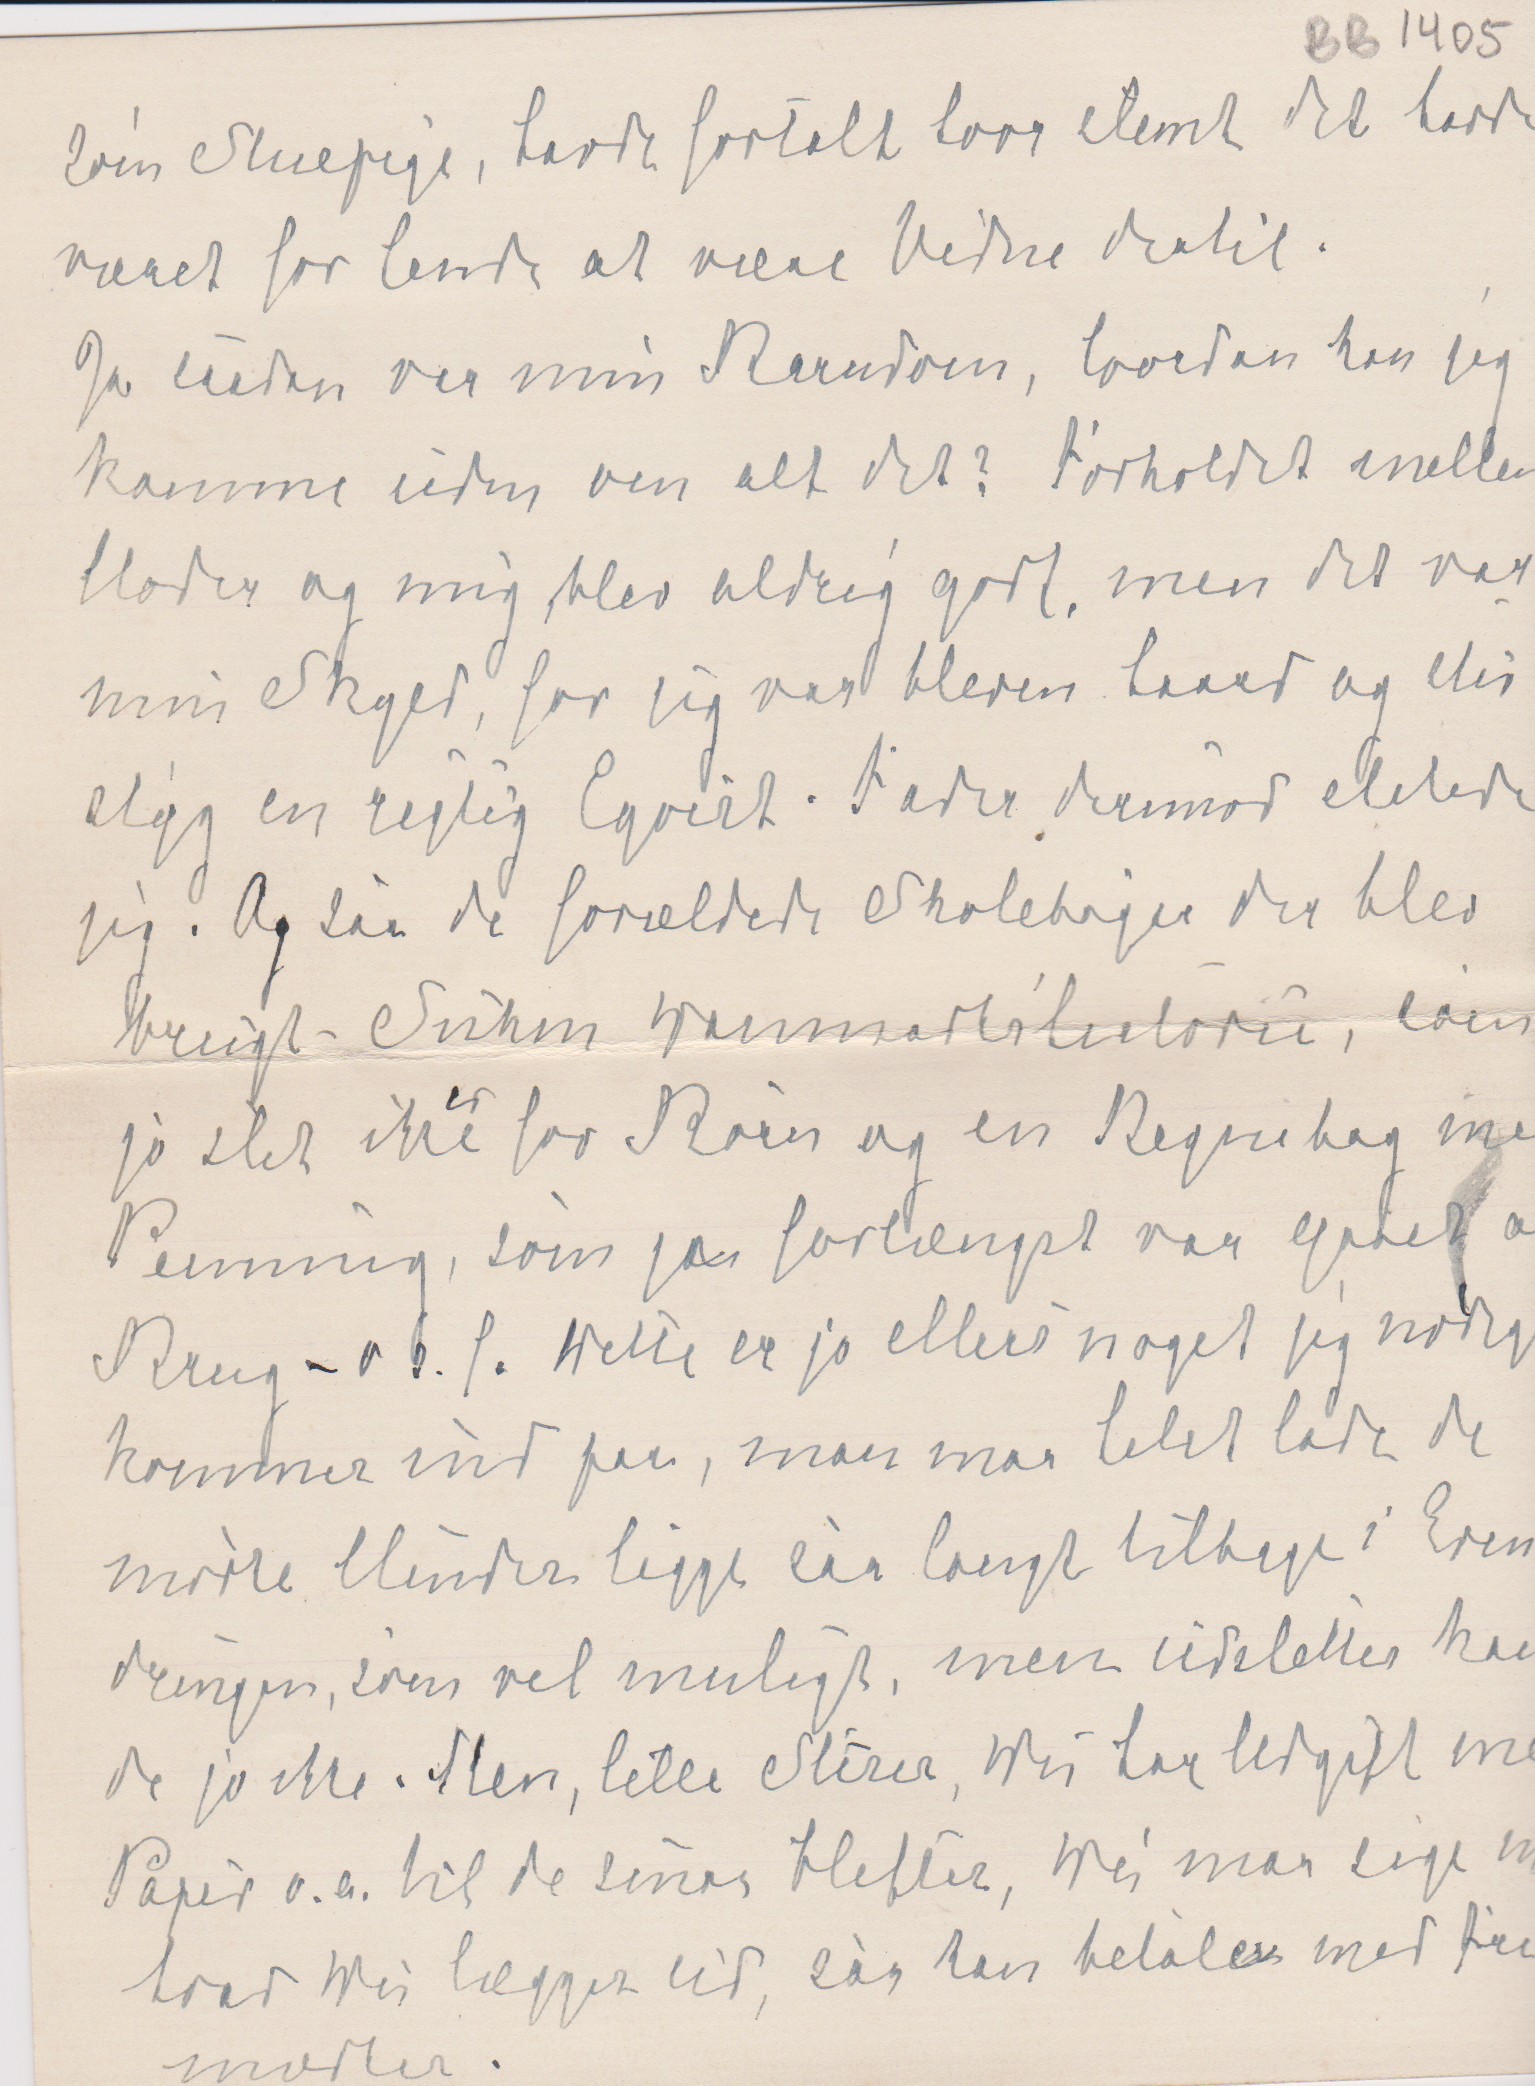 BB 1405
som Stuepige, havde fortalt hvor slemt det havde
været for hende at være Vidne dertil.
Ja saadan var min Barndom, hvordan kan jeg
komme uden om alt det? Forholdet mellem
Moder og mig blev aldrig godt, men det var
min Skyld, for jeg var bleven haard og
styg en rigtig Egoist. Fader derimod elskede
jeg. Og saa de forældede Skolebøger der blev
brugt – Suhms Danmarkshistorie, som
jo slet ikke er for Børn og en Regnebog me
Penning, som jo forlængst var gaaet a
Brug – o.s.f. Dette er jo ellers noget jeg nødig
kommer ind paa, man maa helst lade de
mørke Minder ligge saa langt tilbage i Erin
dringen, som vel muligt, men udslettes kan
de jo ikke. Men, lille Søster, Du har Udgift me
Papir o.a. til de smaa Hefter, Du maa sige m
hvad Du lægger ud, saa kan betales med Fri
mærker.